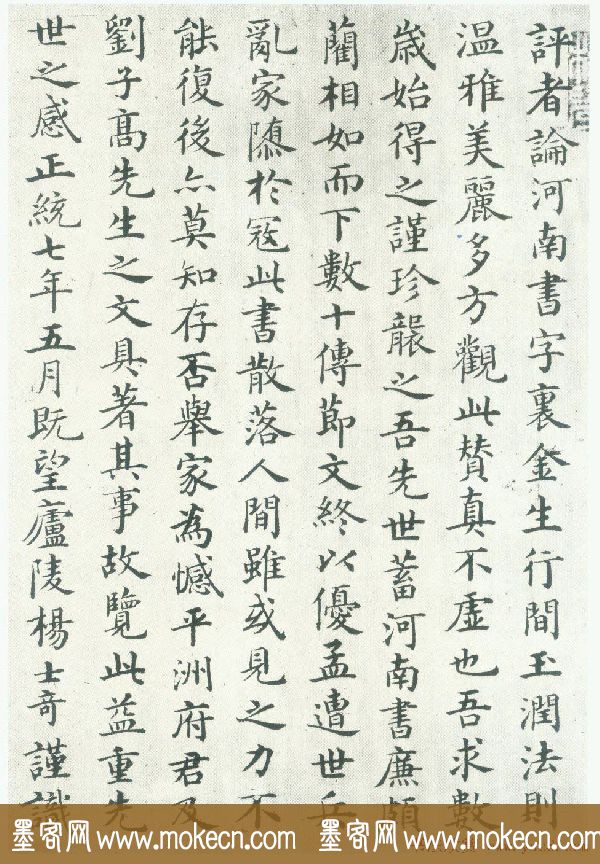 評者論河南書字裏金生行間玉潤法則
温雅美麗多方觀此賛真不虛也吾求數
歲始得之謹珍襲之吾先世蓄河南書廉頗
藺相如而下數十傳節文終以優孟遭世兵
亂家隳於寇此書散落人間雖或見之力不
能復後亦莫知存否舉家為憾平洲府君及
劉子高先生之文具著其事故覽此益重先
世之感正統七年五月既望廬陵楊士奇謹識
墨客网 www.mokecn.com 墨客网 www.mokecn.com